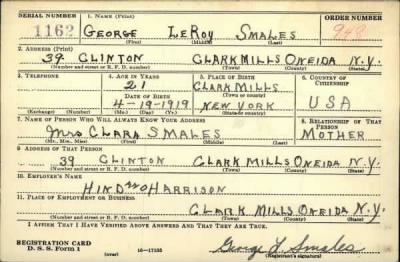 SERIAL NUMBER 1. NAME (Print) ORDER NUMBER
1162 GEORGE LEROY SMALES 949
(First) (Middle) (Last)
2. ADDRESS (Print)
39 CLINTON CLARK MILLS ONEIDA N.Y.
(Number and street or R. F. D. number) (Town) (County) (State)
3. TELEPHONE 4. AGE IN YEARS 5. PLACE OF BIRTH 6. COUNTRY OF CITIZENSHIP
21 CLARK MILLS
DATE OF BIRTH (Town or county)
4-19-1919 NEW YORK USA
(Exchange) (Number) (Mo.) (Day) (Yr.) (State or country)
7. NAME OF PERSON WHO WILL ALWAYS KNOW YOUR ADDRESS 8. RELATIONSHIP OF THAT PERSON
Mrs CLARA SMALES MOTHER
(Mr., Mrs., Miss) (First) (Middle) (Last)
9. ADDRESS OF THAT PERSON
39 CLINTON CLARK MILLS ONEIDA N.Y.
(Number and street or R. F. D. number) (Town) (County) (State)
10. EMPLOYER'S NAME
HIND AND HARRISON
11. PLACE OF EMPLOYMENT OR BUSINESS
CLARK MILLS ONEIDA N.Y.
(Number and street or R. F. D. number) (Town) (County) (State)
I AFFIRM THAT I HAVE VERIFIED ABOVE ANSWERS AND THAT THEY ARE TRUE.
REGISTRATION CARD
D. S. S. Form 1 (over) 16-17105 George L. Smales
(Registrant's signature)